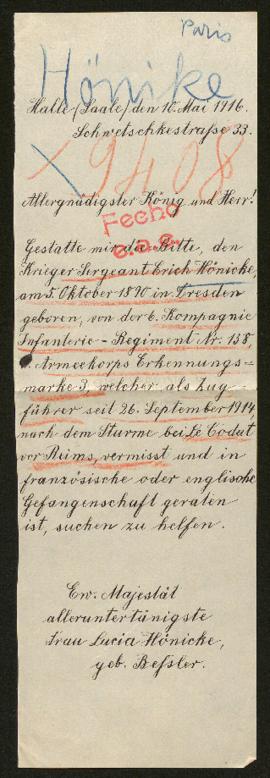 Paris
Hönicke
Halle (Saale) den 10. Mai 1916.
Schwetschkestraße 33.
9408
Allergnädigster König und Herr!
Fecho
Gestatte mir die Bitte, den
Krieger Sergeant Erich Hönicke,
am 5. Oktober 1890 in Dresden
geboren, von der 6. Kompagnie
Infanterie-Regiment Nr. 138,
Armeekorps Erkennungs=
marke 3, welcher als Zug
führer seit 26. September 1914
nach dem Sturme bei Le Godat
vor Reims, vermisst und in
französische oder englische
Gefangenschaft geraten
ist, suchen zu helfen.
Ew. Majestät
alleruntertänigste
Frau Lucia Hönicke,
geb. Beßler.